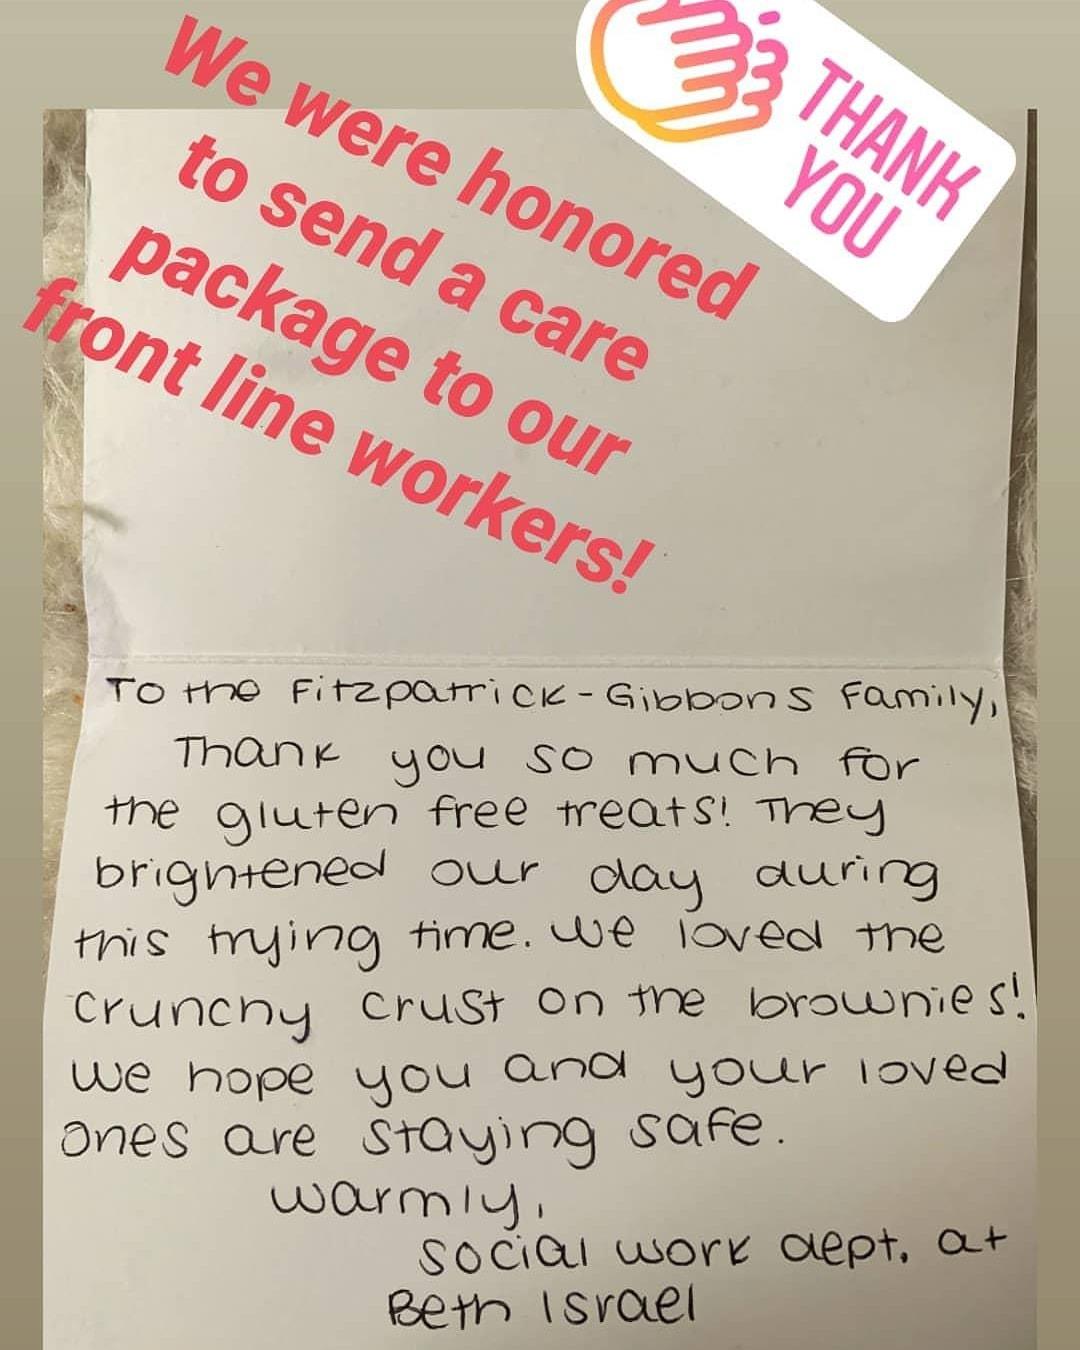 We were honored
to send a care
package to our
front line workers!
THANK
YOU
To the Fitzpatrick-Gibbons Family,
Thank you so much for
the gluten free treats! They
brightened our day during
this trying time. We loved the
crunchy crust on the brownies!
We hope you and your loved
ones are staying safe.
Warmly,
Social work dept. at
Beth Israel